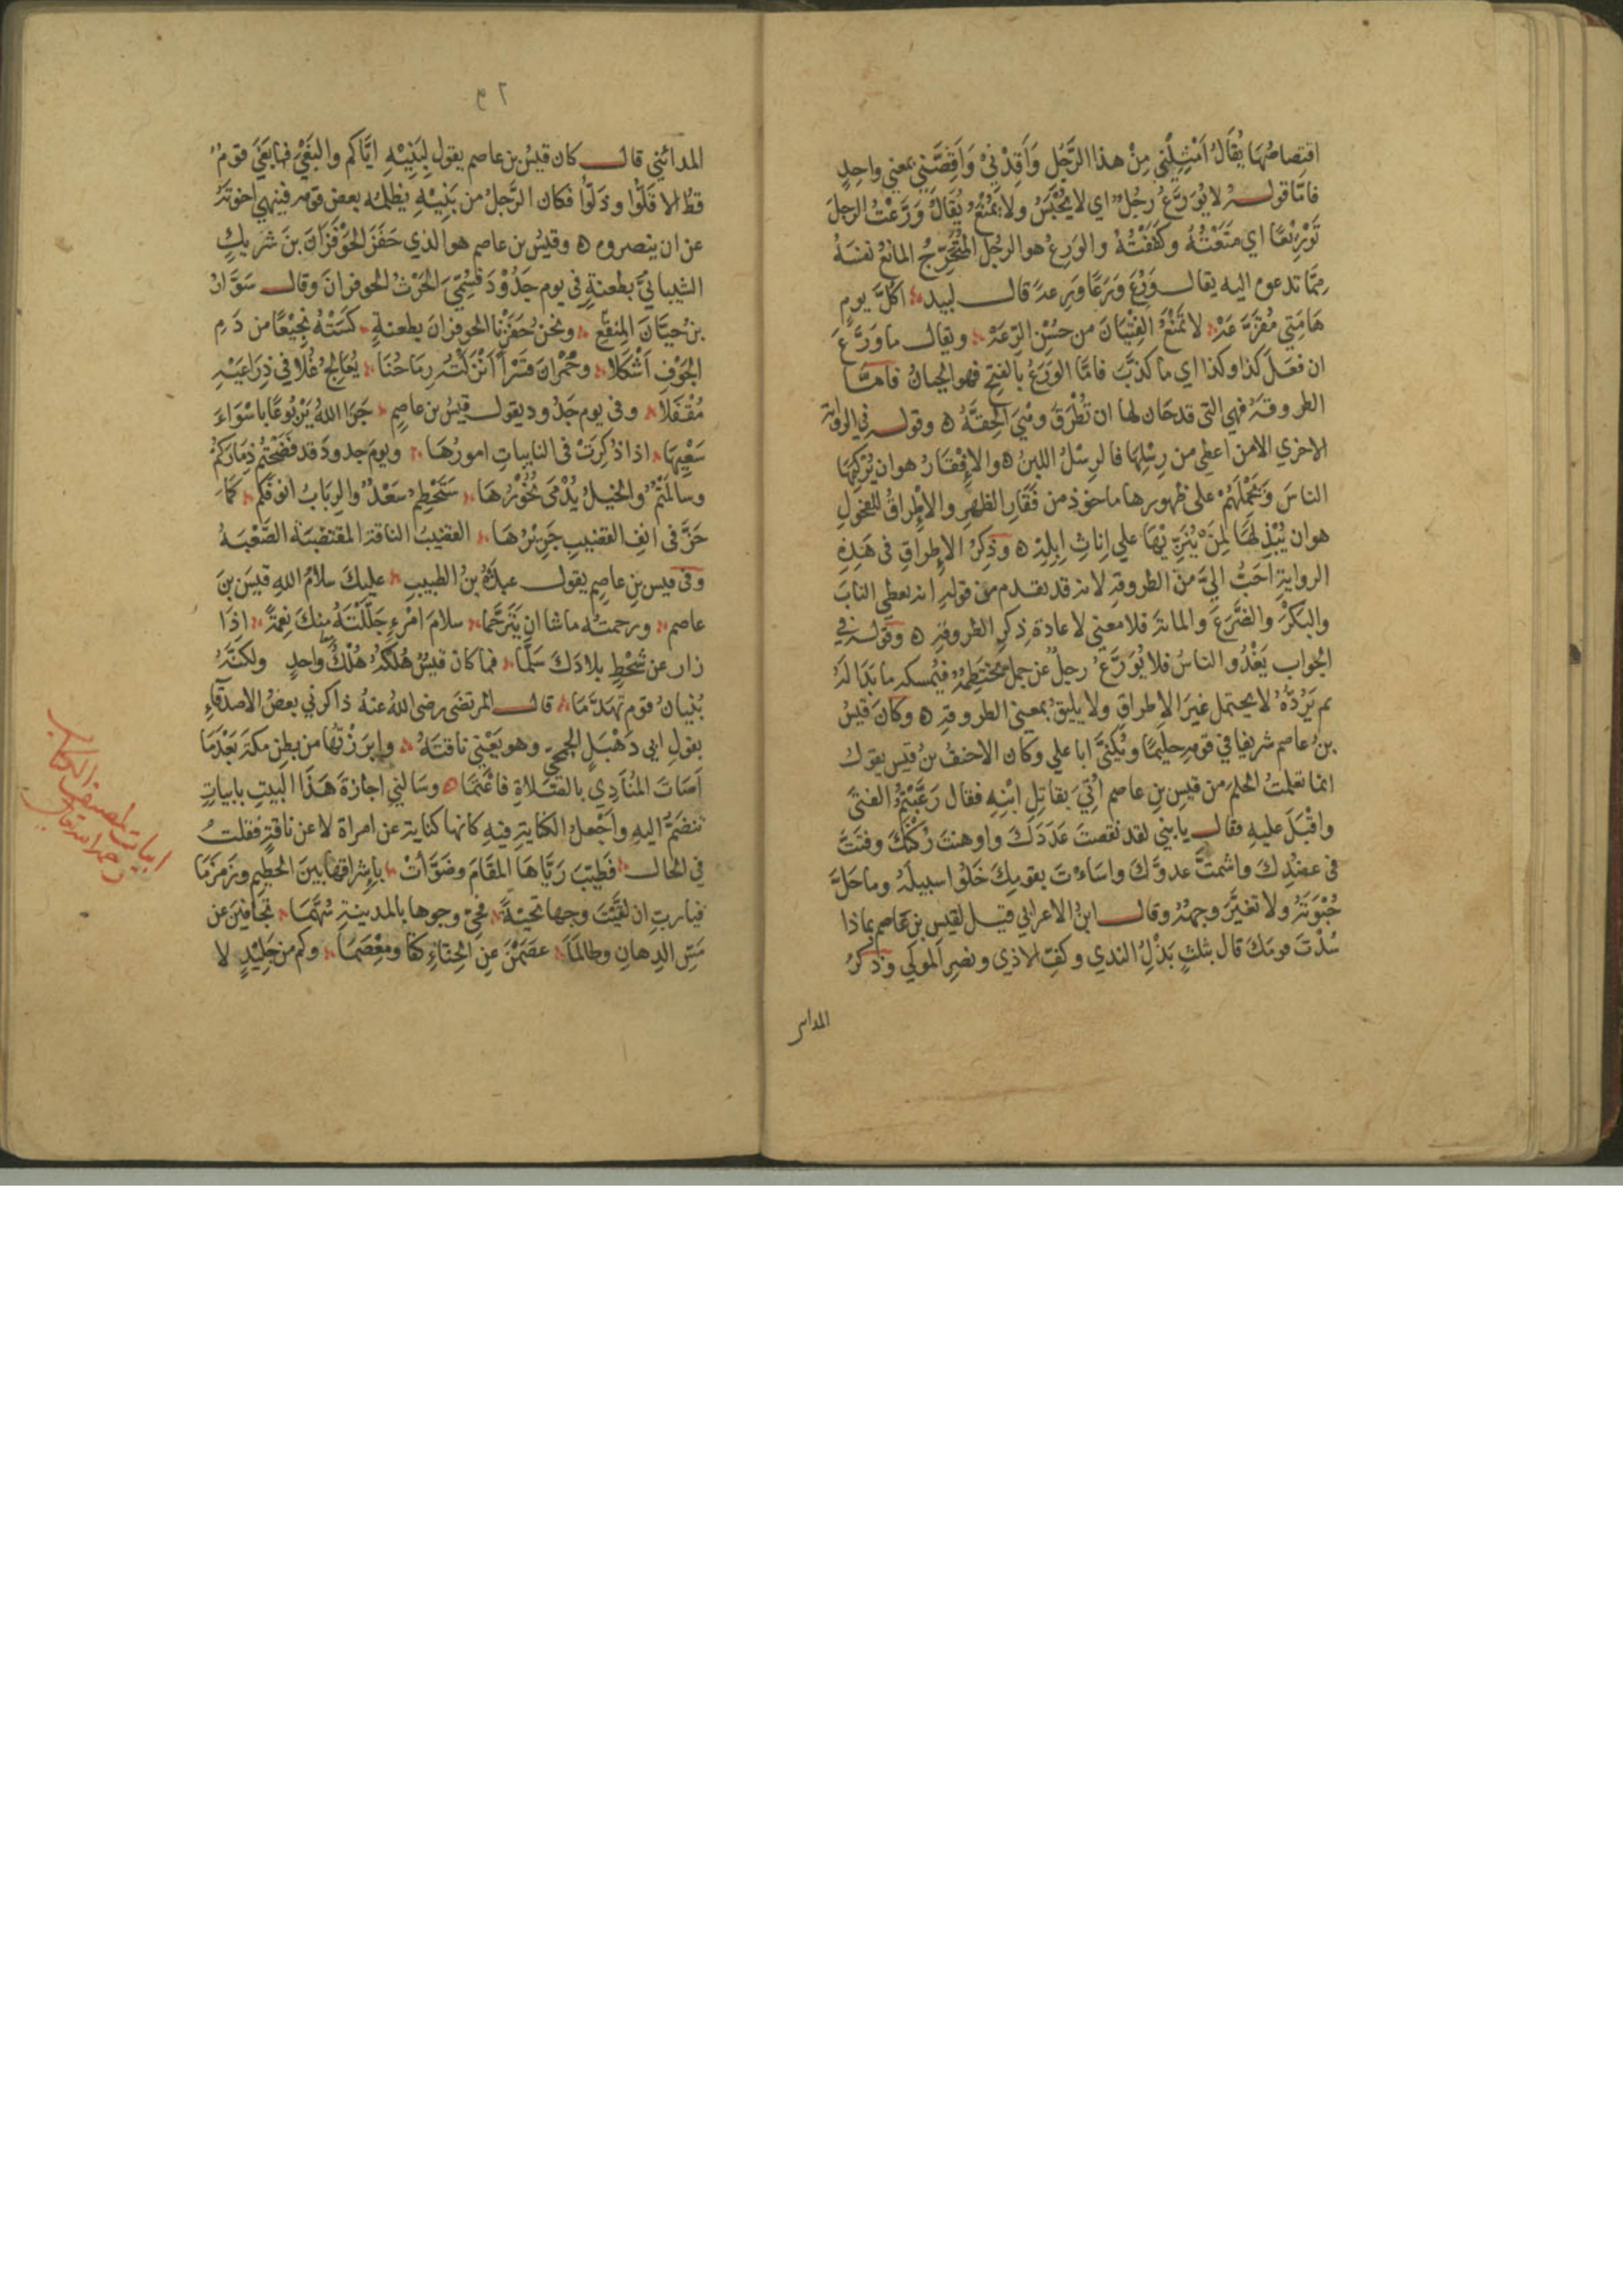 اقتصاصُهَا يُقَالُ اَمْثِلْنِي مِنْ هذا الرَّجُل وَاَقِدْنِيْ وَاَقِصَّنِي بمعني واحِدٍ
فامّا قولـــه لا يُوَرَّعُ رَجُلٌ اي لا يُحْبَسُ ولا يُمْنَعُ يُقَالُ وَرَّعْتُ الرجلَ
تَوْرِيْعًا اي مَنَعْتُهُ وكَفَفْتُهُ والوَرِعُ هو الرجُل المُتحَرِّجُ المانعُ نفسَهُ
مِمَّا تدعوه اليه يقالـــ وَرُعَ وَرَعًا وَرِعةً قالـــ لبيد اَكُلَّ يومٍ
هَامَتِي مُقَزَّعَهْ لا تَمْنَعُ الفِتْيَانَ من حُسْنِ الرِّعَهْ ويقالـــ ما وَرَّعَ
ان فَعَلَ كذا وكذا اي ما كذَّبَ فامَّا الوَرَعُ بالفتحِ فهو الجبانُ فامّـا
الطروقةُ فهي التي قد حَان لها ان تُطْرَقَ وهْيَ الحِقَّةُ ه وقولـــه في الرواية
الاخري الا من اعطي من رِسْلِهَا فالرِسْلُ اللبنُ ه والاِفْقَارُ هو ان يُرْكِبَهَا
الناسَ ويَحْمِلَهُمْ علي ظهورها ماخوذ من فَقَارِ الظهرِ والاِطْراقُ للفحُولِ
هو ان يُبْذِلَهَا لِمَنْ يُنْزِيْهَا علي اِناثِ اِبِلِهْ ه وذِكرُ الاِطراقِ في هَذِهِ
الروايةِ اَحَبُّ اِليَّ من الطروقةِ لانه قد تقدم من قولهِ انه يعطي النابَ
والبَكْرَ والضَّرَعَ والمائةَ فلا معني لاعادة ذِكرِ الطروقةِ ه وقولـــه في
الجواب يَغْدُوا الناسُ فلا يُوَرَّعُ رجلٌ عن جمل يَخْتَطِمُهُ فيُمسكه ما بَدَا لَهُ
ثم يَرُدَّهُ لا يحتمل غيرَ الاِطراقِ ولا يليقُ بمعني الطروقةِ ه وكانَ قيسُ
بنُ عاصم شريفا في قومهِ حليمًا ويُكنيَّ ابا علي وكان الاحنفُ بنُ قيس يقول
انما تعلمتُ الحلمَ من قيسِ بنِ عاصم اُتِيَ بقاتِلِ ابْنِهِ فقال رَعَّبْتُمُ الفتيَ
واقْبَلَ عليهِ فقالـــ يا بني لقد نقصتَ عَدَدَكَ واوهنتَ رُكْنَكَ وفتَتَّ
في عضُدِكَ واشمتَّ عدوَّكَ واسَاءْتَ بقومِكَ خَلُوا سبيلَهُ وما حَلَّ
حُبْوَتَهُ ولا تغيَّرَ وجهُهُ وقالـــ ابنُ الاعرابي قيـل لقيسِ بنِ عَاصم بماذا
سُدْتَ قومَكَ قال بثلثٍ بَذْلِ الندي وكفِّ الاذي ونصرِ المولي وذكرُ
المداين
٩٢
المدائني قالـــ كان قيسُ بن عاصم يقول لِبَنِيْهِ اِيَّاكم والبَغْيَ فما بَغَيَ قومٌ
قطُّ اِلا قَلُّوا وذَلُّوا فكان الرَّجلُ من بَنِيْهِ يظلمُه بعض قومه فينهي اخوتَهُ
عن ان ينصروه ه وقيسُ بن عاصم هو الذي حَفَزَ الحَوْفَزَانَ بنَ شَرِيكٍ
الشيبانيَّ بطعنةٍ في يومِ جَدُوْدَ فسُمِّيَ الحَرْثُ الحوفزانَ وقالـــ سَوَّارُ
بنُ حيَّانَ المِنقَرِيُّ ونحنُ حَفَزْنَا الحوفزانَ بطعنةٍ كَسَتْهُ نجِيْعًا من دَمِ
الجَوْفِ اَشْكَلَا وحُمْرانَ قَسْرًا اَنْزَلَتْهُ رِمَاحُنَا يُعَالِجُ غُلًّا في ذِرَاعَيْهِ
مُقْفَلَا وفي يوم جَدُود يقولـــ قيسُ بن عاصِم جَزَا اللهُ يَرْبُوعًا باَسْوَاءِ
سَعْيِهَا اذا ذُكِرَتْ في النايباتِ امورُهَا ويومَ جدودَ قد فضَحْتُم ذِمَارَكُمُ
وسالَمْتُمُ والخيلُ يُدْمَي نُحُوْرُهَا سَتَحْطِمُ سَعْدٌ والرِبَابُ انوفَكم كَمَا
حَزَّ في انفِ القضيبِ جَرِيْرُهَا القضيبُ الناقة المقتضبَة الصَّعْبَـةُ
وفي قيس بنِ عاصِم يقولـــ عبدَةُ بنُ الطبيبِ عليكَ سلامُ اللهِ قيسَ بنَ
عاصم ورحمتُه ما شا ان يَتَرَحَّما سلامَ امْرءٍ جَلَّلْتَهُ مِنكَ نِعمَةً اذَا
زار عن شَحْطٍ بلادَكَ سَلَّمَا فما كان قيسٌ هُلْكُهُ هُلْكُ واحدٍ ولكنَّهُ
بُنْيانُ قومٍ تَهَدَّمَا قالـــ المرتضى رضى اللهُ عنهُ ذاكرني بعضُ الاصدقاءِ
بقولِ ابي دَهْبَلٍ الجمحي وهو يَعْنِي ناقتَهُ وابرَزْتُهَا من بطنِ مكةَ بَعْدَمَا
اَصَاتَ المُنَادِي بالصَّلاةِ فاَعْتَمَا ه وسَالني اجازةَ هَذَا البيتِ بابياتٍ
تنضَمُّ اليهِ واَجْعلُ الكنايةَ فيهِ كانها كناية عن امراة لا عن ناقةٍ فقلتُ
في الحالـــ فَطَيَّبَ رَيَّاهَا المَقَامَ وضَوَّاَتْ بِاِشْراقِهَا بينَ الحَطِيمِ وزَمزَمَا
فيا ربِ ان لقَّيْتَ وجها تحيَّةً فحَيِّ وجوها بالمدينةِ سُهَّمَا تجَافَيْنَ عن
مَسِّ الدِهانِ وطالمَا عصَمْنَ عنِ الحِنَّاءِ كفًّا ومِعْصَمَا وكم من جَلِيْدٍ لا
ابيات لمصنف الكتاب
رحمه الله تعالى